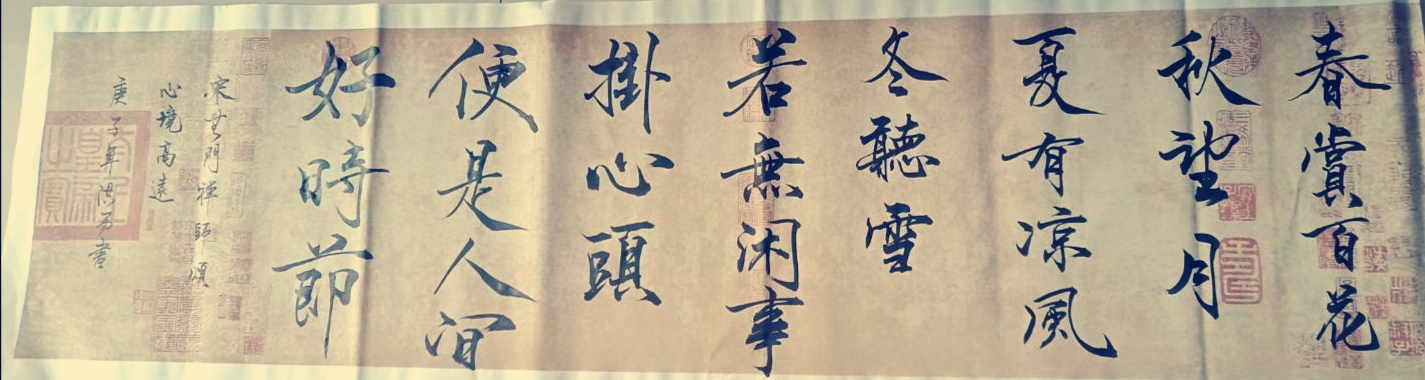 春賞百花
秋望月
夏有凉風
冬聽雪
若無闲事
掛心頭
便是人间
好時節
宋無門禪師頌
心境高遠
庚子年
書